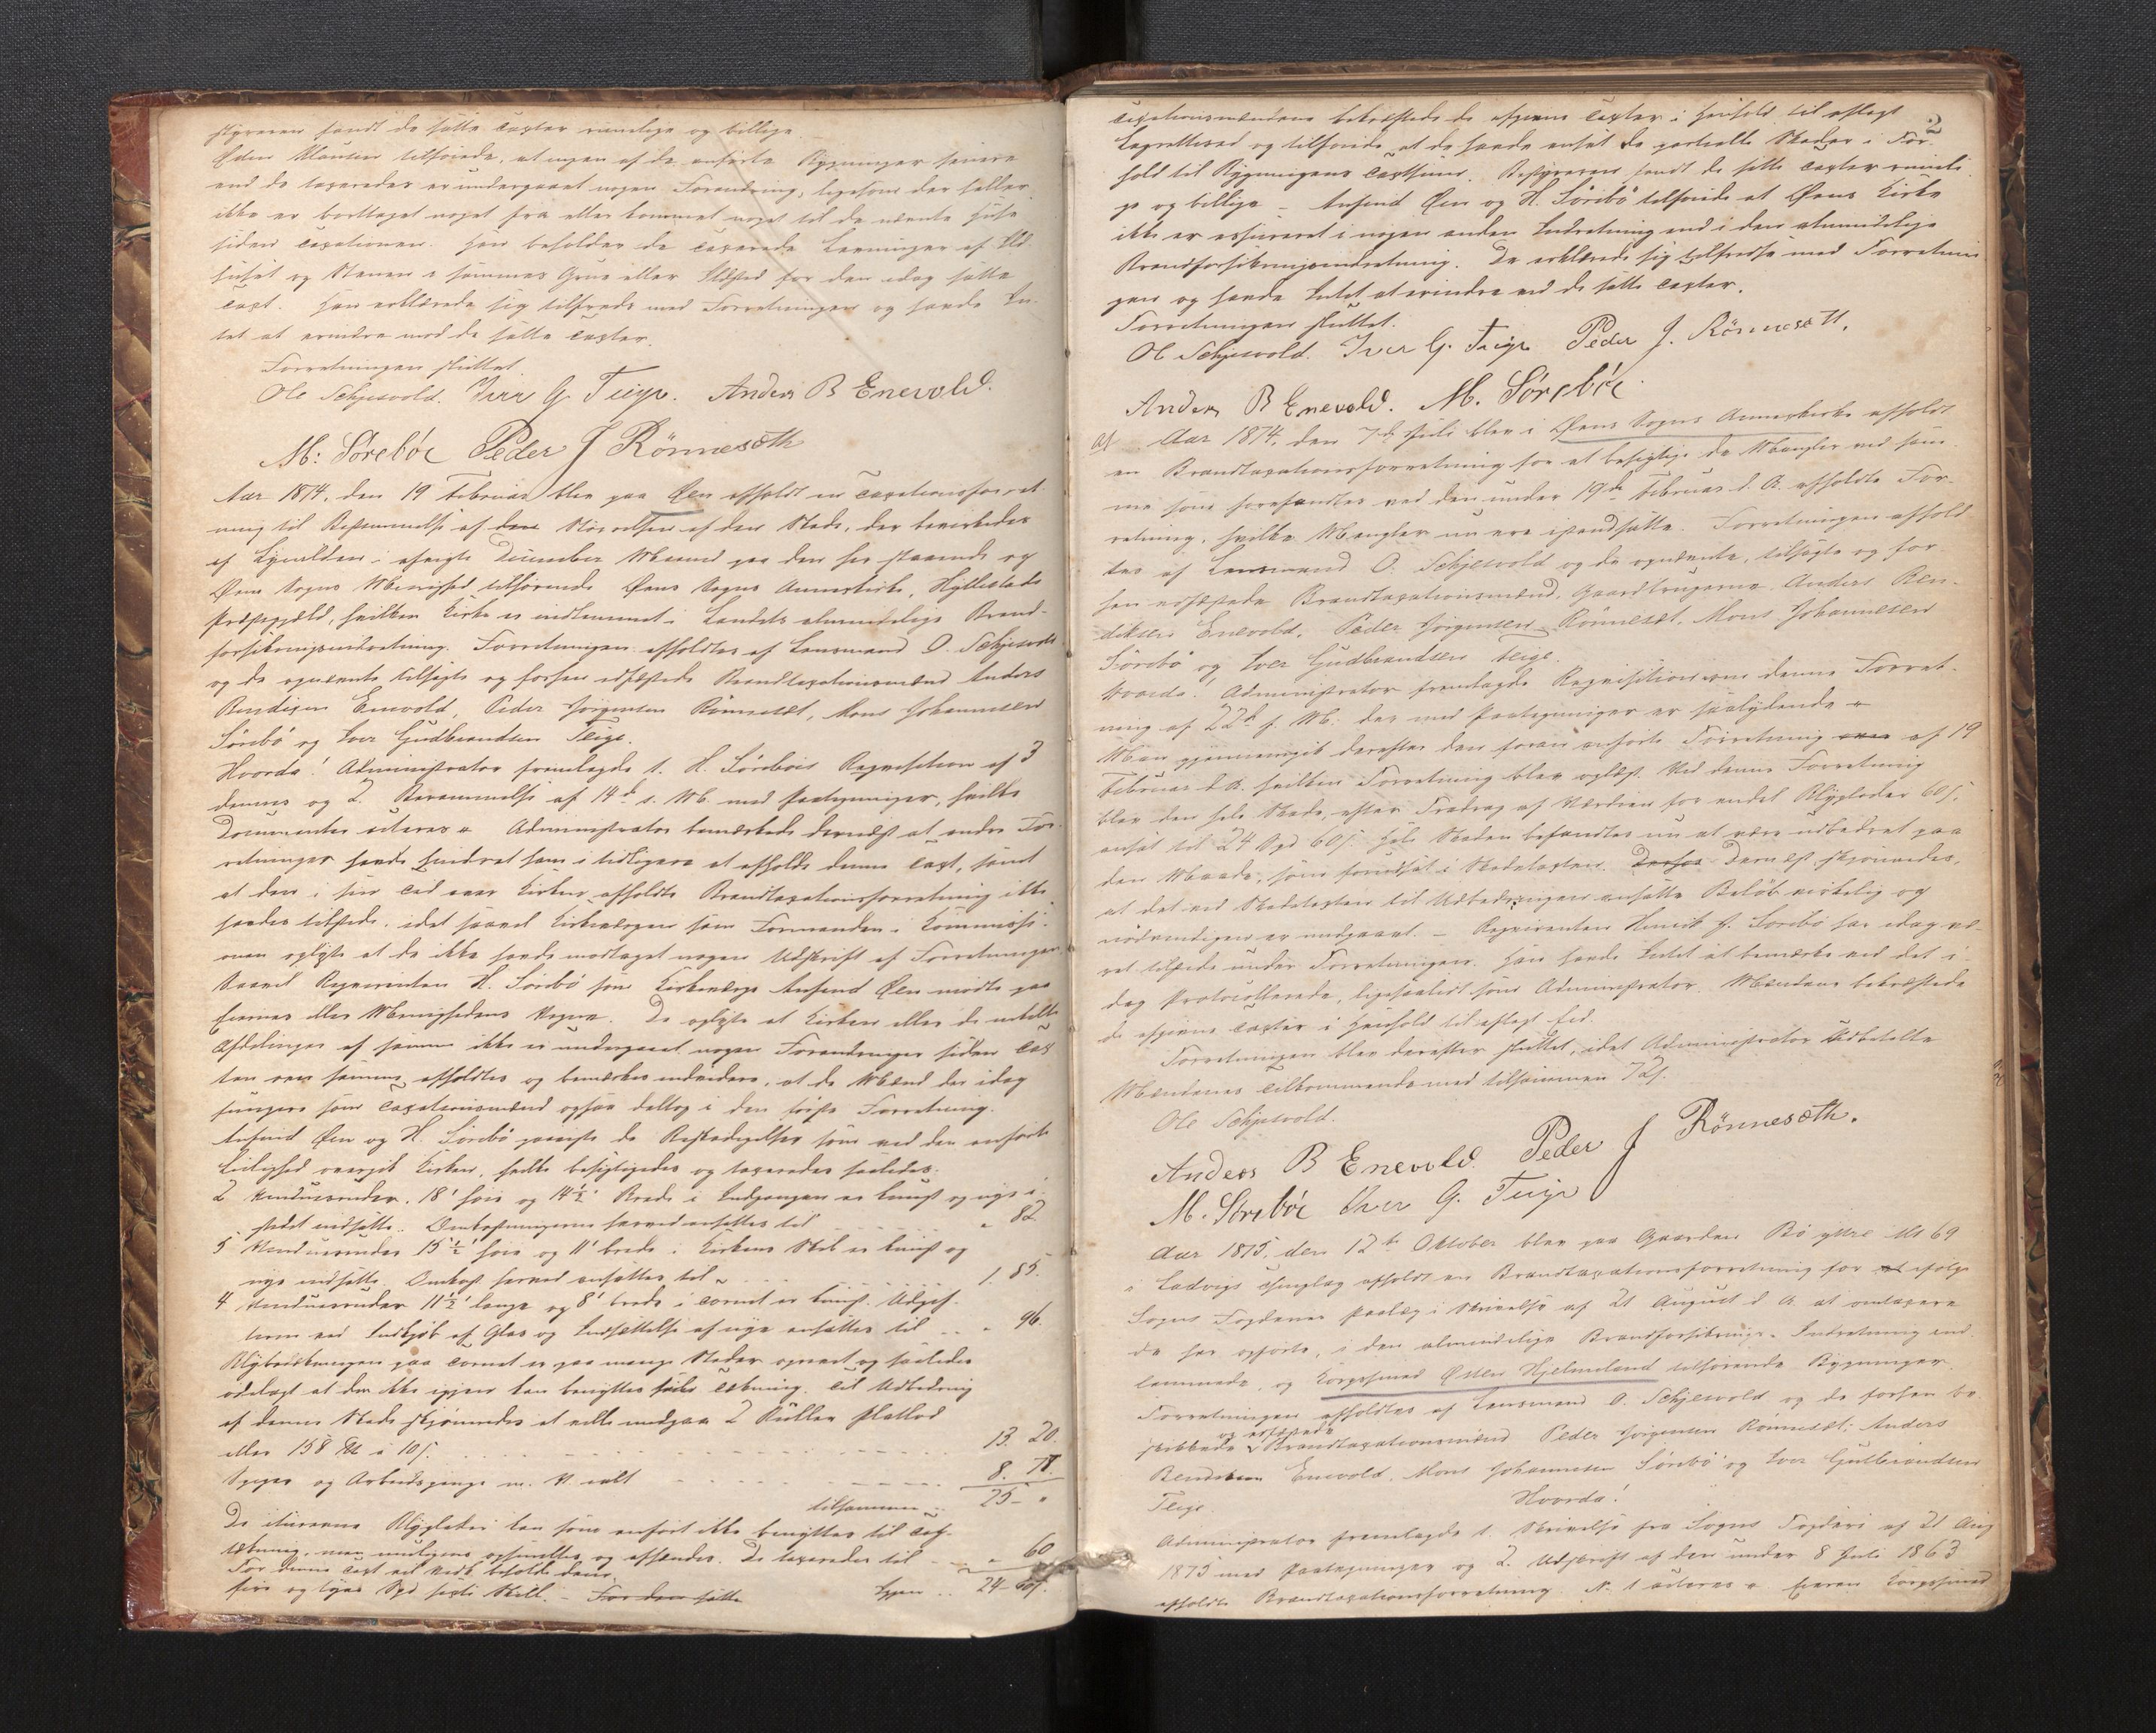 styreren fandt de satte Taxter rimelige og billige.
Østen Klausen tilføiede, at ingen af de anførte Bygninger senere
end de taxeredes er undergaaet nogen Forandring, ligesom der heller
ikke er borttaget noget fra eller kommet noget til de nævnte Huse
siden Taxationen. Han beholder de taxerede Levninger af Ild-
huset og Stenen i sammes Grue eller Ildsted for den idag satte
Taxt. Han erklærede sig tilfreds med Forretningen og havde In-
tet at erindre mod de satte Taxter.
Forretningen sluttet.
Ole Schjesvold. Iver G. Teige. Anders B Enevold.
M: Sørebøe Peder J Rönnesæth
Aar 1874, den 19 Februar blev paa Øen afholdt en Taxationsforret-
ning til Bestemmelse af den Størrelsen af den Skade, der bevirkedes
af Lynilden i afvigte December Maaned paa den her staaende og
Øens Sogns Menighed tilhørende Øens Sogns Annexkirke, Hyllestads
Præstegjeld, hvilken Kirke er indlemmet i Landets almindelige Brand-
forsikringsindretning. Forretningen afholdtes af Lensmand O. Schjesvold
og de opnævnte tilsagte og forhen edfæstede Brandtaxationsmænd Anders
Bendixen Enevold, Peder Jörgensen Rönneset, Mons Johannesen
Sörebö og Iver Gudbrandsen Teige.
Hvorda! Administrator fremlagde 1. H. Sörebøes Requisition af 3
dennes og 2. Berammelse af 14d s. M. med Paategninger, hvilke
Documenter citeres " Administrator bemærkede dernæst at andre For-
retninger havde hindret ham i tidligere at afholde denne Taxt, samt
at den i sin Tid over Kirken afholdte Brandtaxationsforretning ikke
havdes tilstede, idet saavel Kirkeværgen som Formanden i Kommissi-
onen oplyste at de ikke havde modtaget nogen Udskrift af Forretningen.
Saavel Requirenten H. Sörebö som Kirkeværge Anfind Øen mödte paa
Eiernes eller Menighedens Vegne. De oplyste at Kirken eller de enkelte
Afdelinger af samme ikke er undergaaet nogen Forandringer siden Tax-
ten over samme afholdtes og bemærkes endvidere, at de Mænd der idag
fungere som Taxationsmænd ogsaa deltog i den første Forretning.
Anfind Øen og H. Sörebö paaviste de Beskadigelser som ved den anførte
Leilighed overgik Kirken, hvilke besigtigedes og taxeredes saaledes:
2 Vinduesruder, 18' høie og 14½' Brede i Indgangen er knust og nye i-
stedet indsatte. Omkostningerne herved ansattes til " 82
5 Vinduesruder 15½' høie og 11' brede i Kirkens Skib er knust og
nye indsatte. Omkost. herved ansattes til " 1. 85.
4 Vinduesruder 11½' lange og 8' brede i Taarnet er knust. Udgif-
terne ved Indkjøb af Glas og Indsættelse af nye ansattes til " 96.
Blybedækningen paa Taarnet er paa mange Steder oprevet og saaledes
ødelagt at den ikke igjen kan benyttes til Tækning. Til Udbedring
af denne Skade skjønnedes at ville medgaa 2 Ruller Platlod
eller 158 ℔ a 10 s. 13. 20.
Spiger og Arbeidspenge m. V. ialt 8. 77.
tilsammen 25 - "
De iturevne Blyplader kan som anført ikke benyttes til Tag-
tækning, men muligens opsmeltes og afhændes. De taxeredes til " 60
For denne Taxt vil Vedk. beholde dem.
fire og tyve Spd sexti Skill. - For den satte Igjen 24 - 60 s.

2
Taxationsmændene bekræftede de afgivne Taxter i Henhold til aflagt
Lagrettesed og tilføiede at de havde ansat de partielle Skader i For-
hold til Bygningens Taxtsum. Bestyreren fandt de satte Taxter rimeli-
ge og billige - Anfind Øen og H. Sörebö tilføiede at Øens Kirke
ikke er assureret i nogen anden Indretning end i den almindelige
Brandforsikringsindretning. De erklærede sig tilfredse med Forretnin-
gen og havde Intet at erindre ved de satte Taxter.
Forretningen sluttet.
Ol Schjesvold. Iver G. Teige Peder J. Rönnesæth.
Anders B Enevold. M. Sørebøe.
Af Aar 1874, den 7d Juli blev i Øens Sogns Annexkirke afholdt
en Brandtaxationsforretning for at besigtige de Mangler ved sam-
me som forefandtes ved den under 19de Februar d. A. afholdte For-
retning, hvilke Mangler nu ere istandsatte. Forretningen afhold-
tes af Lensmand O. Schjesvold og de opnævnte, tilsagte og for-
hen edfæstede Brandtaxationsmænd, Gaardbrugerne Anders Ben-
diksen Enevold, Peder Jörgensen Rönneset, Mons Johannesen
Sörebö og Iver Gudbrandsen Teige.
Hvorda! Administrator fremlagde Requisition om denne Forret-
ning af 22d f. M. der med Paategninger er saalydende "
Man gjennemgik derefter den foran anførte Forretning over af 19
Februar d A. hvilken Forretning blev oplæst. Ved denne Forretning
blev den hele Skade, efter Fradrag af Værdien for endel Blyplader 60 s.
ansat til 24 Spd 60 s. Hele Skaden befandtes nu at være udbedret paa
den Maade, som forudsat i Skadetaxten. Derfor Dernæst skjønnedes,
at det ved Skadetaxten til Udbedringen ansatte Beløb virkelig og
nødvendigen er medgaaet. - Requirenten Henrik J. Sörebö har idag væ-
ret tilstede under Forretningen. Han havde Intet at bemærke ved det i-
dag Protocollerede, ligesaalidt som Administrator. Mændene bekræftede
de afgivne Taxter i Henhold til aflagt Ed.
Forretningen blev derefter sluttet, idet Administrator udbetalte
Mændenes Tilkommende med tilsammen 72 s.
Ole Schjesvold.
Anders B Enevold. Peder J Rönnesæth.
M. Sørebøe Iver G. Teige
Aar 1875, den 12te Oktober blev paa Gaarden Bö yttre M 69
i Ladvigs Thinglag afholdt en Brandtaxationsforretning for at ifölge
Sogns Fogderies Paalæg i Skrivelse af 21 August d. A. at omtaxere
de her opførte, i den almindelige Brandforsikrings-Indretning ind-
lemmede, og Korpssmed Østen Hjelmeland tilhørende Bygninger.
Forretningen afholdtes af Lensmand O. Schjesvold og de forhen be-
skikkede og edfæstede Brandtaxationsmænd Peder Jörgensen Rönneset, Anders
Bendiksen Enevold, Mons Johannesen Sörebö og Iver Gudbrandsen
Teige. Hvorda!
Administrator fremlagde 1. Skrivelse fra Sogns Fogderi af 21 Aug
1875 med Paategninger og 2. Udskrift af den under 8 Juli 1863
afholdte Brandtaxationsforretning. N. 1 citeres " Eieren Korpssmed